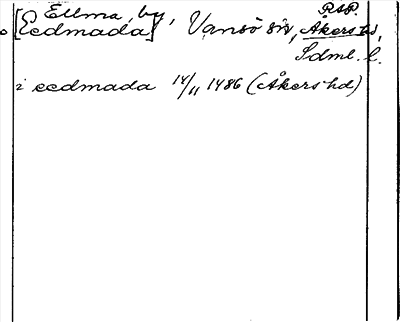 RAP.
Ellma, by,
[Eedmada] Vansö sn, Åkers hd,
Sdml. l.
i eedmada 14/11 1486 (Åkers hd)